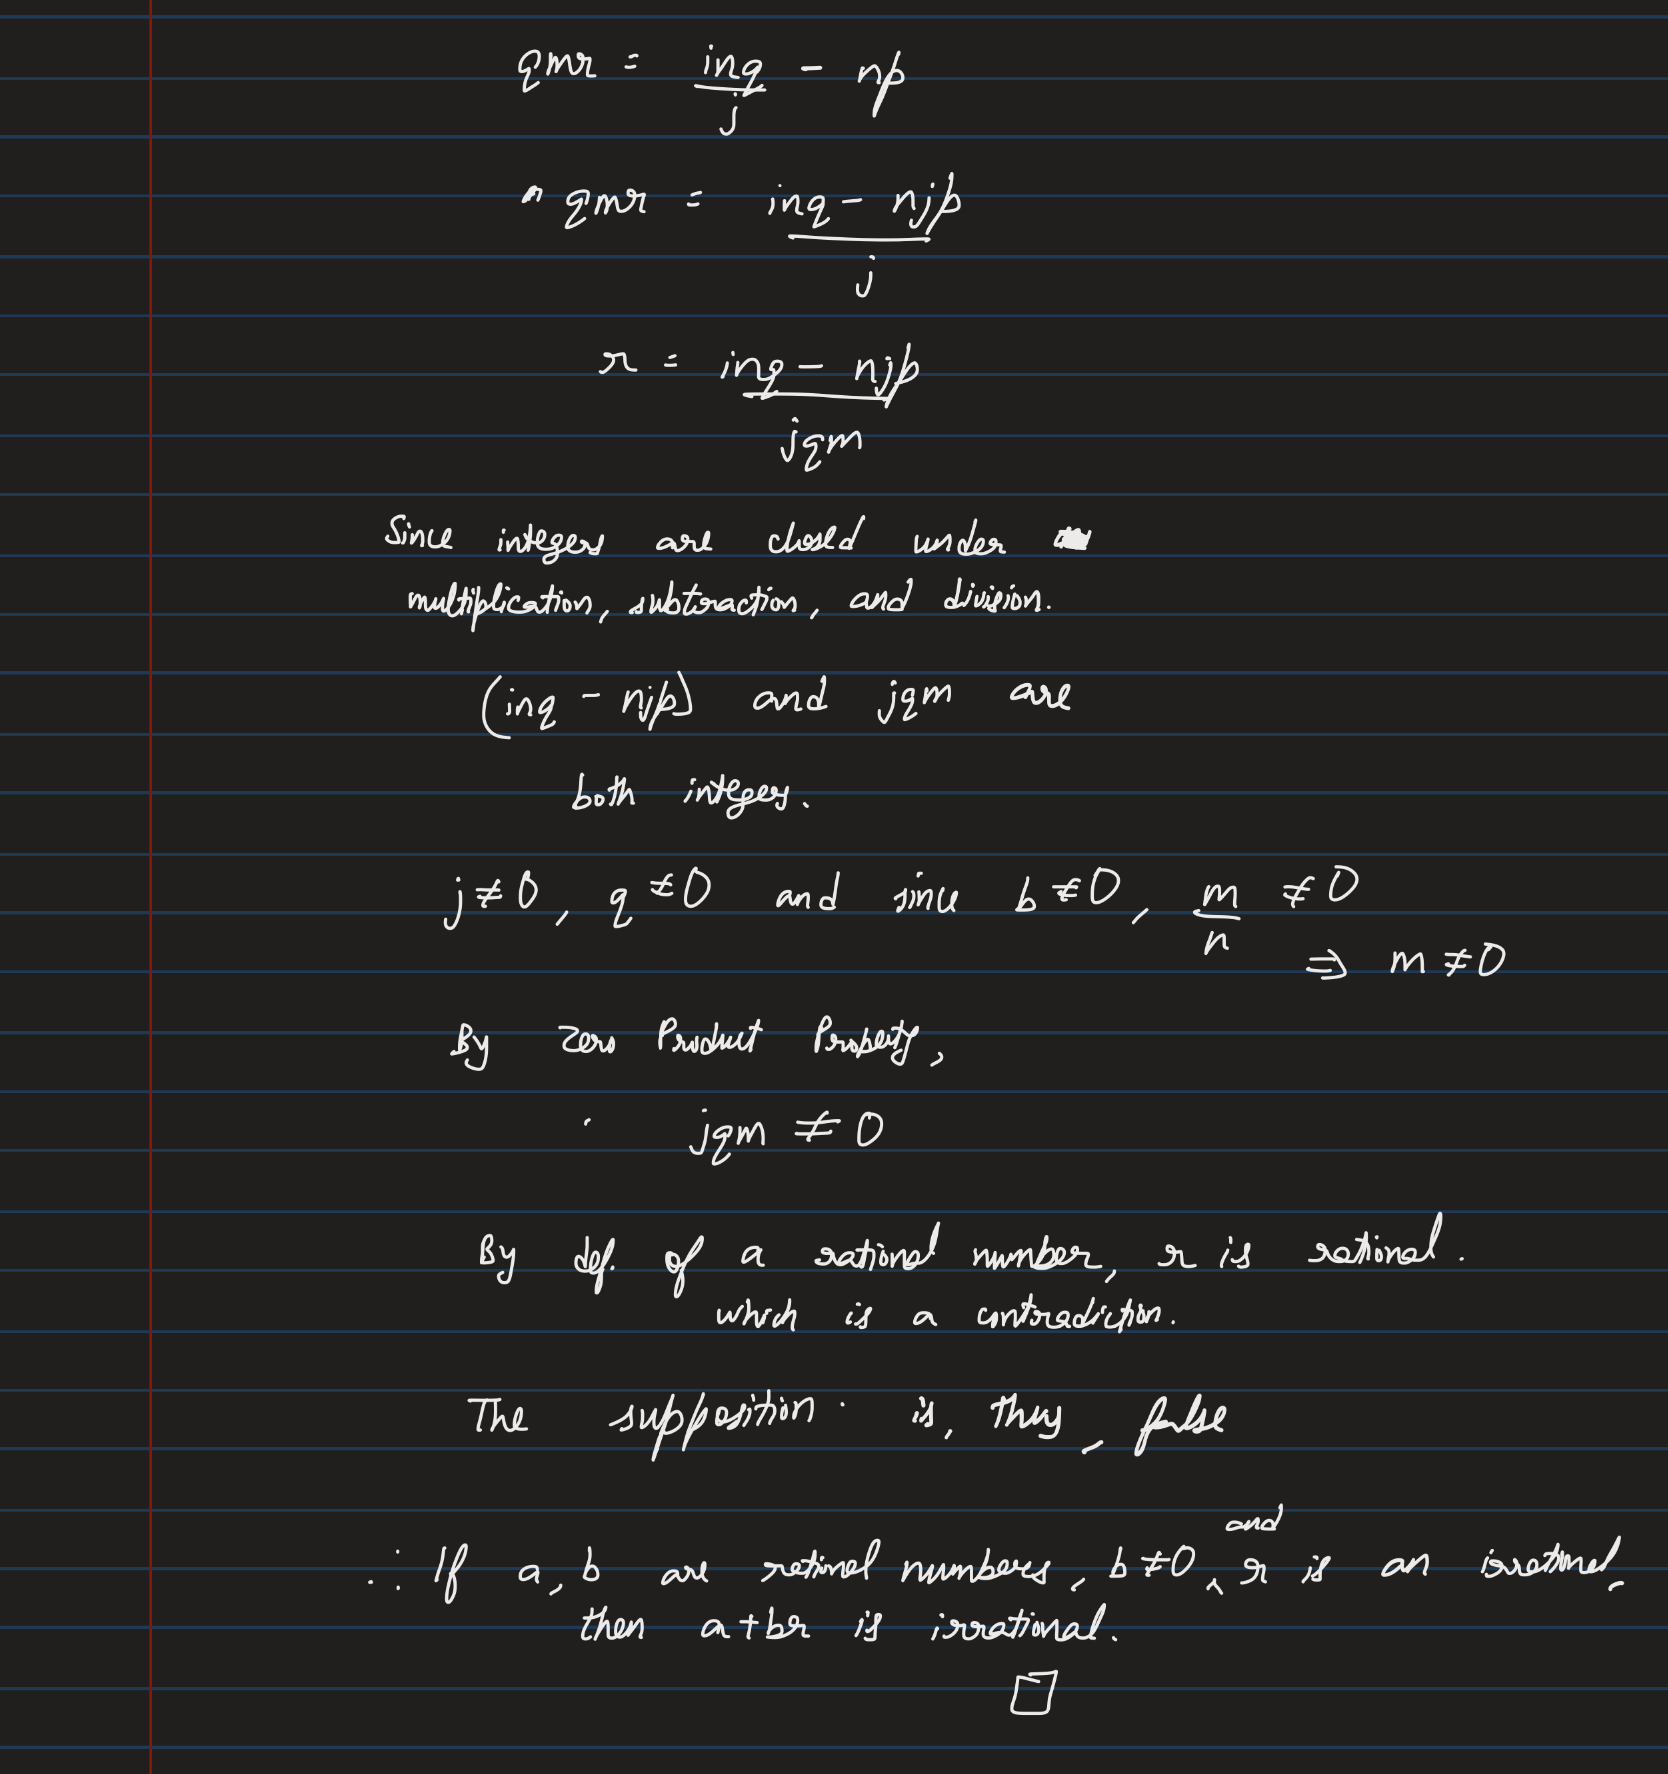 qmr = inq/j - np
qmr = (inq - njp)/j
r = (inq - njp)/jqm
Since integers are closed under
multiplication, subtraction, and division.
(inq - njp) and jqm are
both integers.
j ≠ 0, q ≠ 0 and since b ≠ 0, m/n ≠ 0
⇒ m ≠ 0
By Zero Product Property,
jqm ≠ 0
By def. of a rational number, r is rational.
which is a contradiction.
The supposition is, thus, false
∴ If a, b are rational numbers, b ≠ 0, and r is an irrational,
then a+br is irrational.